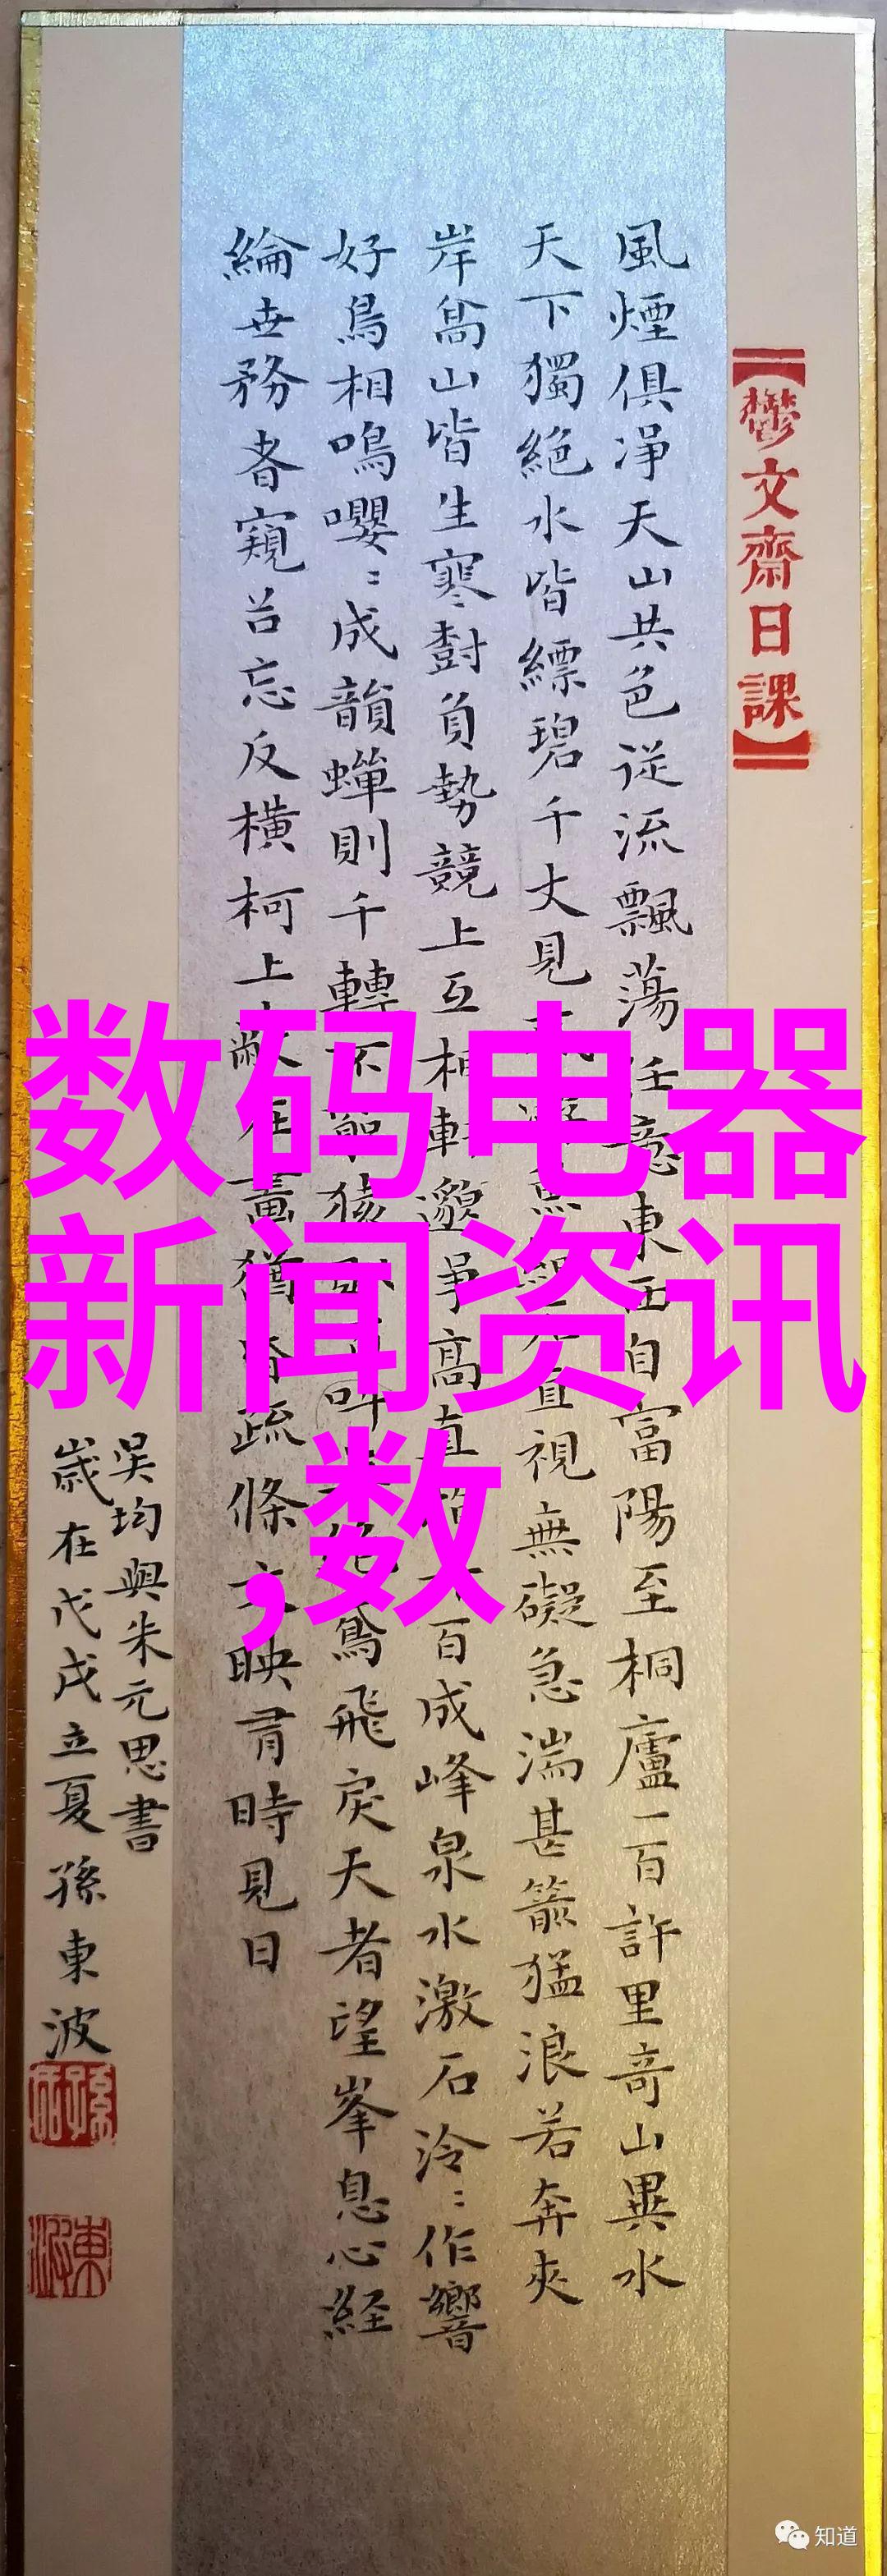 【鬱文齋日課】
風煙俱淨天山共色從流飄蕩任意東西自富陽至桐廬一百許里奇山異水
天下獨絕水皆縹碧千丈見直視無礙急湍甚箭猛浪若奔夾
岸高山皆生寒樹負勢競上互相軒邈爭高直百成峰泉水激石泠〻作響
好鳥相鳴嚶〻成韻蟬則千轉不猿鳶飛戾天者望峯息心經
綸世務者窺谷忘反橫柯上在晝猶疏條交映有時見日
吳均與朱元思書
歲在戊戌立夏孫東波
数码电器
新闻资讯
,数
知道